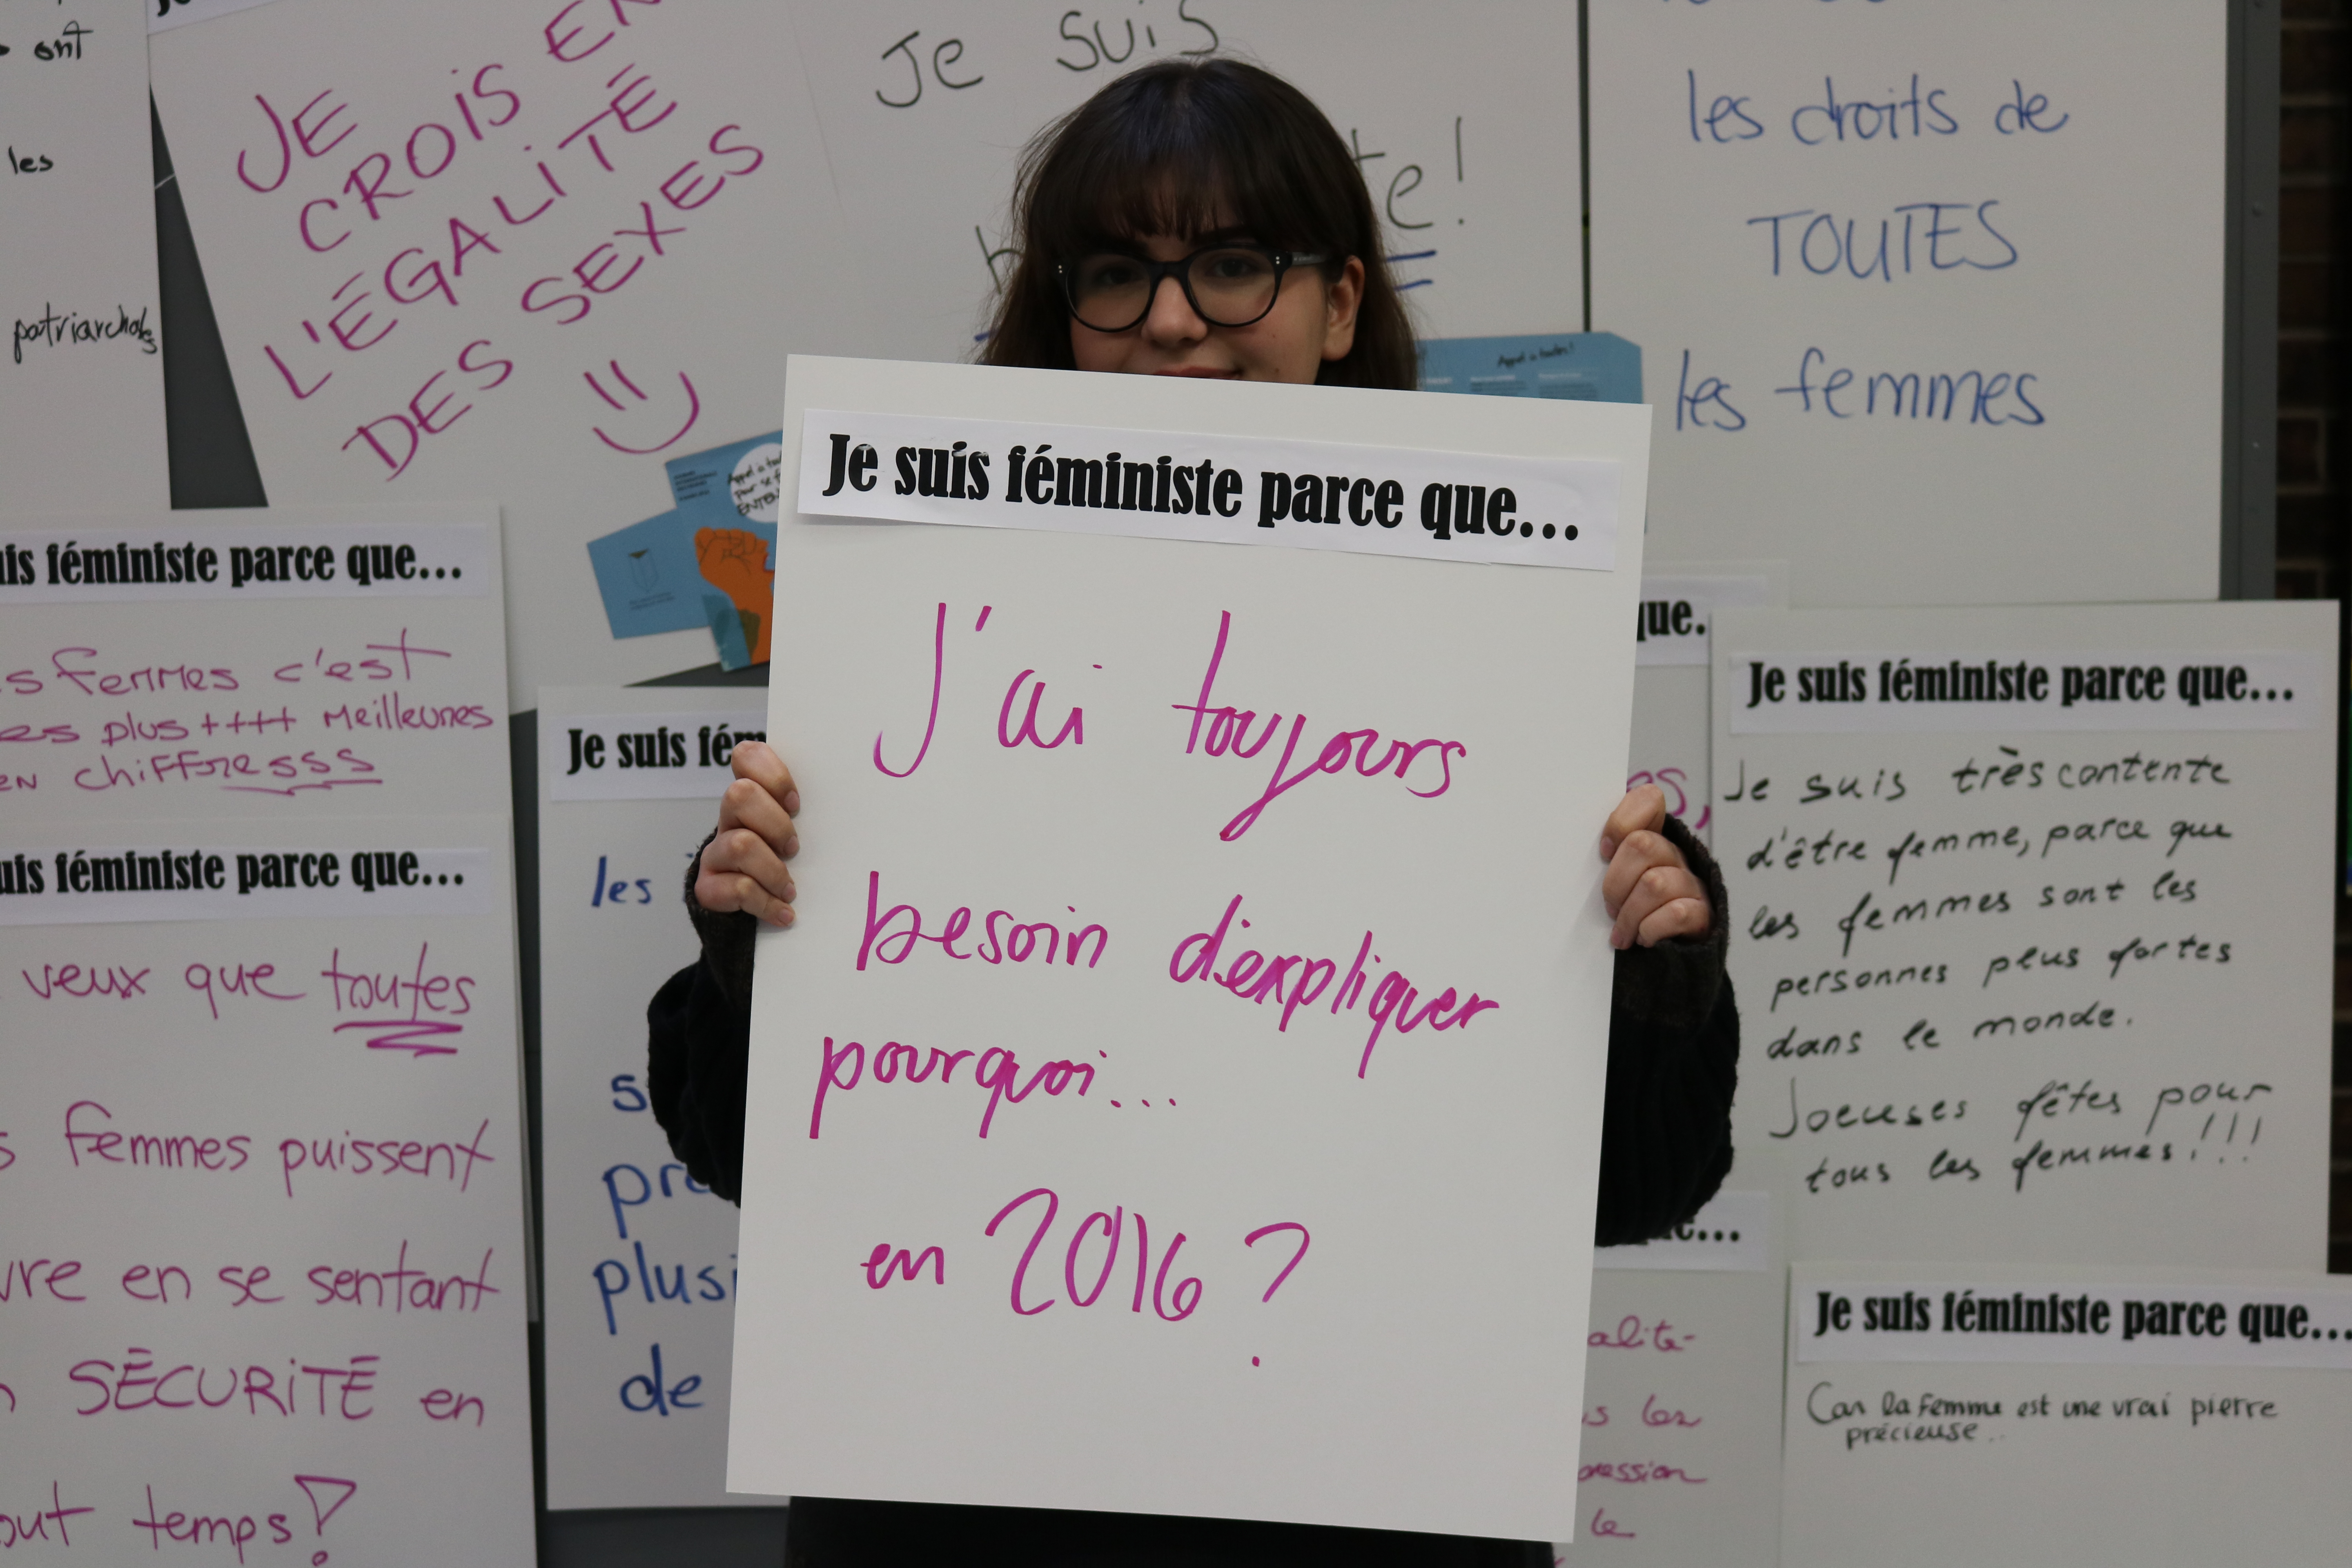 ont
les
patriarchales
JE
CROIS EN
L'ÉGALITÉ
DES SEXES
Je suis
te!
les droits de
TOUTES
les femmes
Appel à toutes!
Je suis féministe parce que...
J'ai toujours
besoin d'expliquer
pourquoi...
en 2016?
uis féministe parce que...
s femmes c'est
es plus ++++ meilleures
en chiffresss
uis féministe parce que...
veux que toutes
s femmes puissent
vre en se sentant
SÉCURITÉ en
out temps!
Je suis fém
les
plusi
de
que.
es,
Je suis féministe parce que...
Je suis très contente
d'être femme, parce que
les femmes sont les
personnes plus fortes
dans le monde.
Joeuses fêtes pour
tous les femmes!!!
e...
alité-
s les
pression
le
Je suis féministe parce que...
Car la femme est une vrai pierre
précieuse..